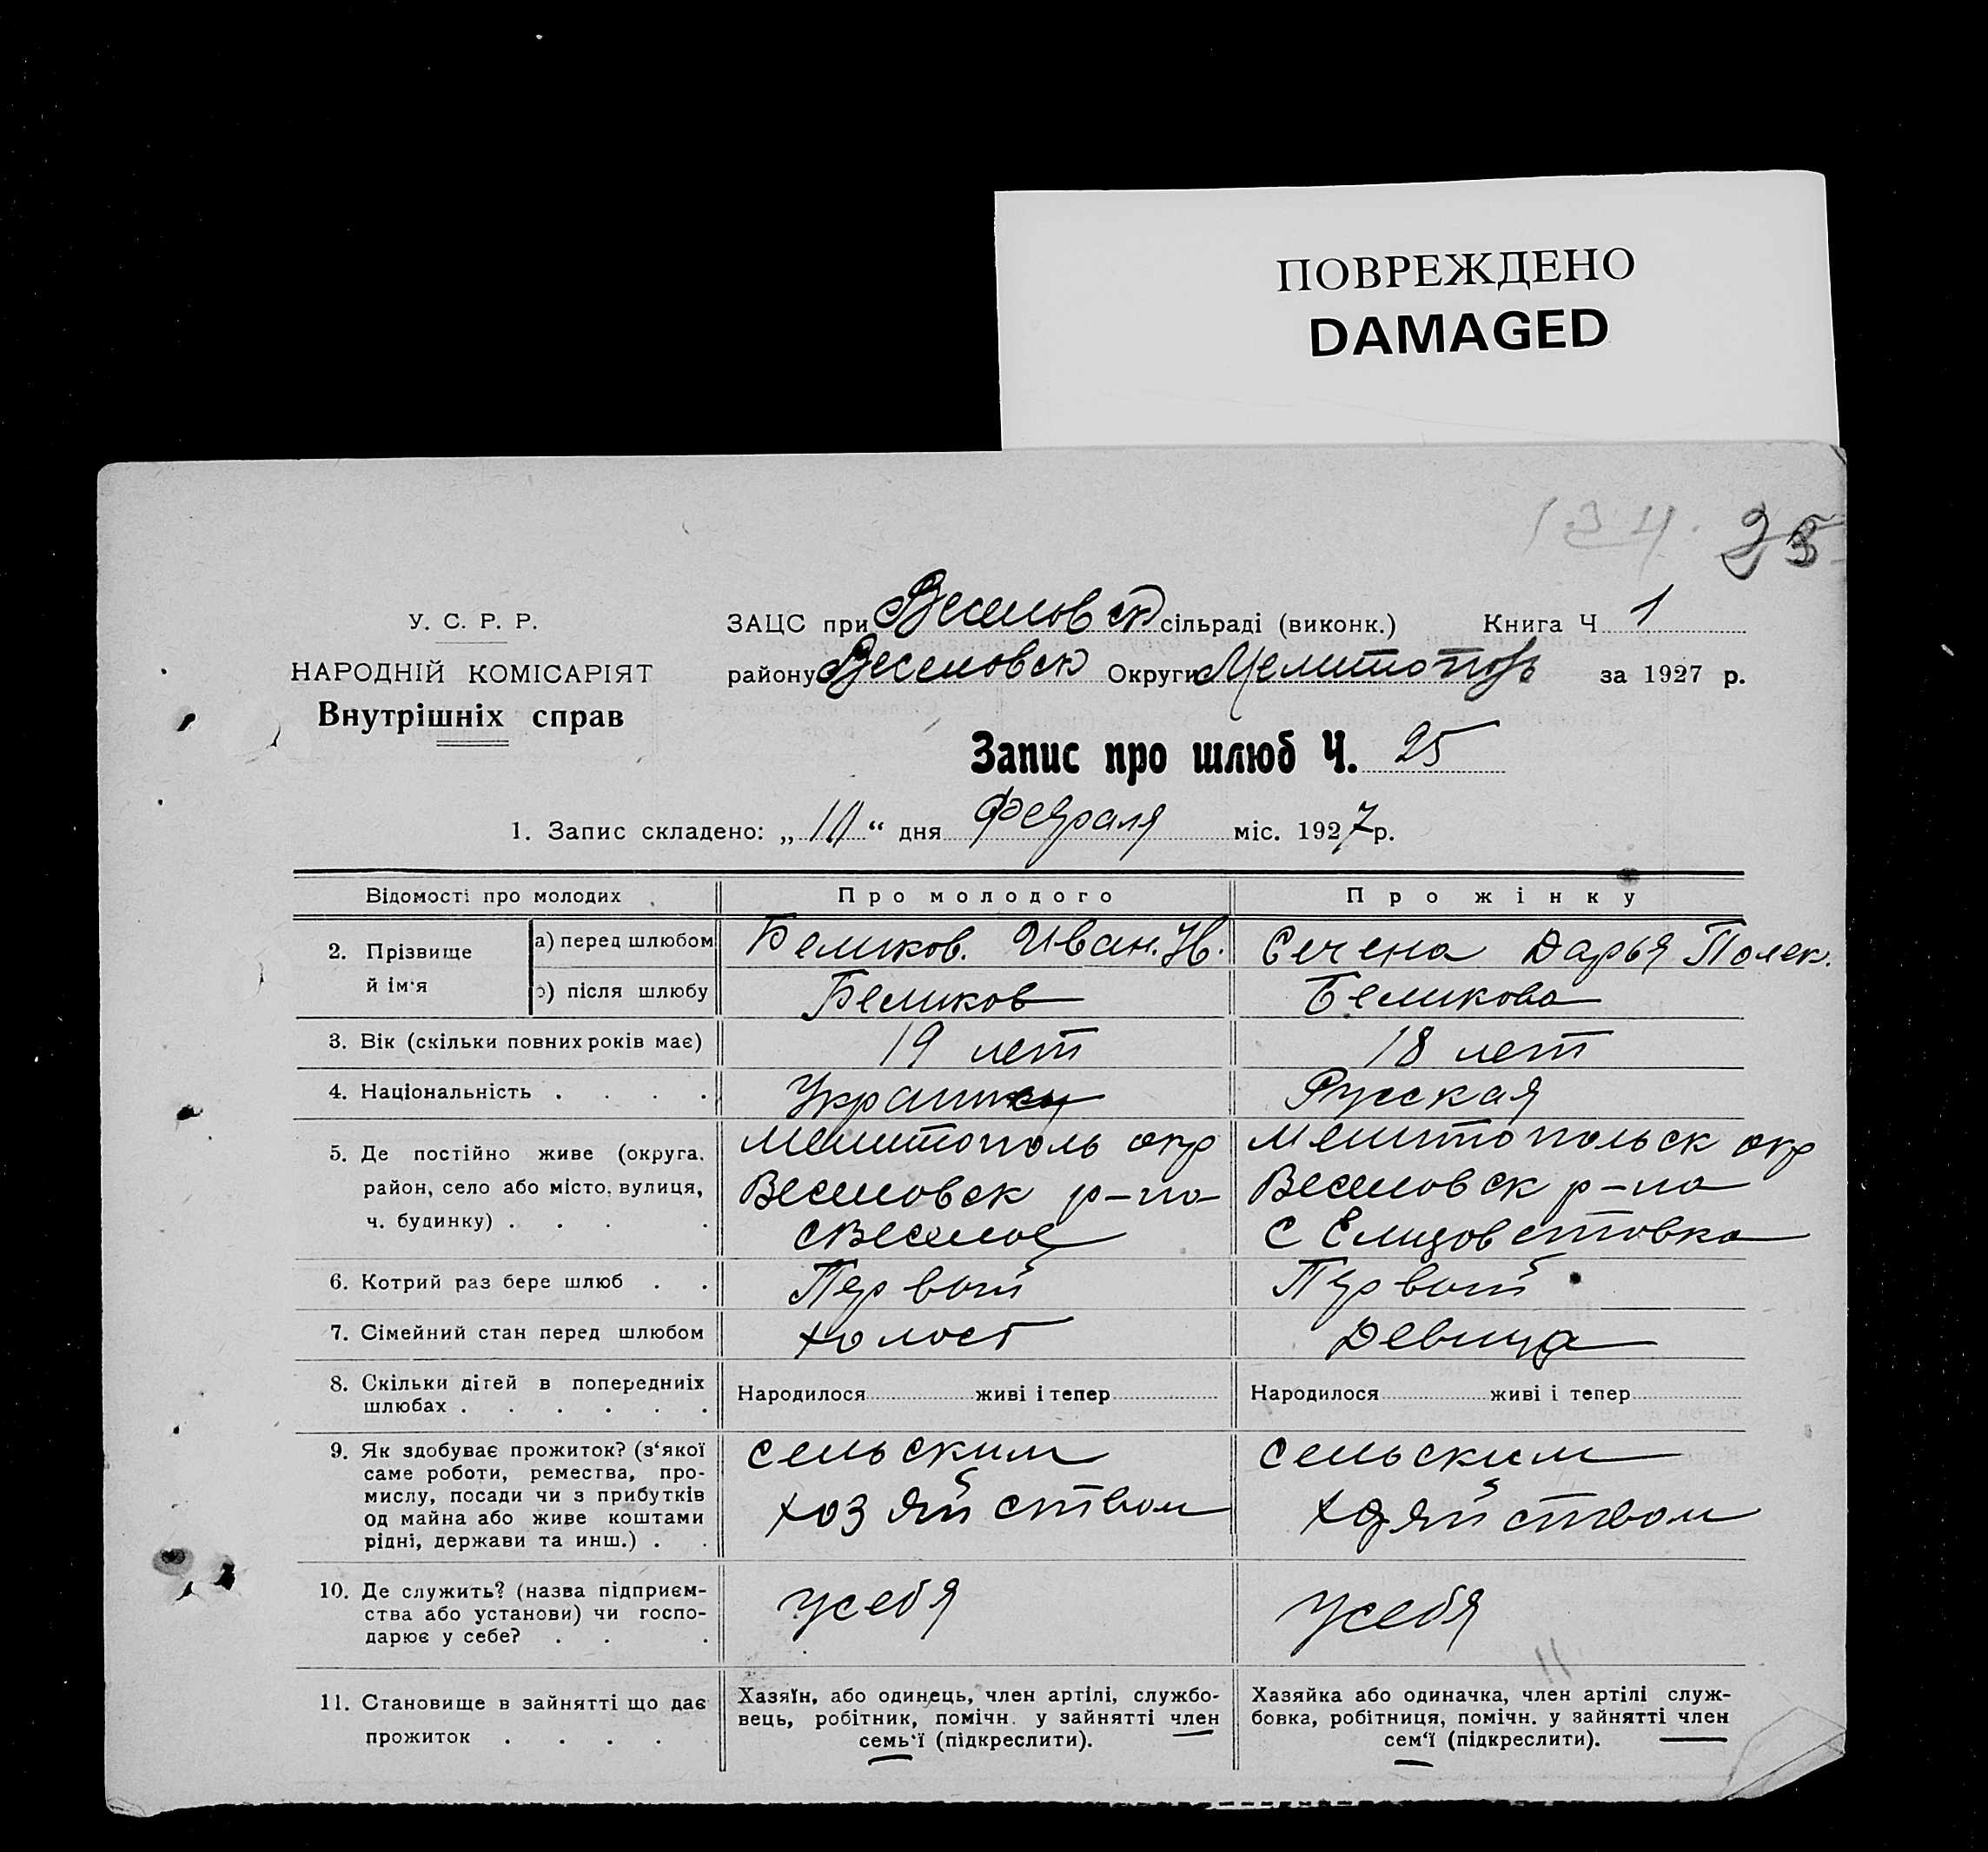 ПОВРЕЖДЕНО
DAMAGED
134. 25
У. С. Р. Р.
НАРОДНІЙ КОМІСАРІЯТ
Внутрішніх справ
ЗАЦС при Веселовск сільраді (виконк.) Книга Ч 1
району Веселовск Округи Мелитополь за 1927 р.
Запис про шлюб Ч. 25
1. Запис складено: „10“ дня Февраля міс. 1927 р.
Відомості про молодих Про молодого Про жінку
2. Прізвище й ім‘я
а) перед шлюбом Беликов. Иван. Н. Сечена Дарья Полек.
б) після шлюбу Беликов Беликова
3. Вік (скільки повних років має) 19 лет 18 лет
4. Національність . . . . Украинец Русская
5. Де постійно живе (округа, Мелитополь окр Мелитопольск окр
район, село або місто, вулиця, Веселовск р-на Веселовск р-на
ч. будинку) . . . . с Веселое С Елизовстовка
6. Котрий раз бере шлюб . . Первый Первый
7. Сімейний стан перед шлюбом холост Девица
8. Скільки дітей в попередниіх Народилося живі і тепер Народилося живі і тепер
шлюбах . . . . . .
9. Як здобуває прожиток? (з‘якої сельским сельским
саме роботи, ремества, про-
мислу, посади чи з прибутків хозяйством хозяйством
од майна або живе коштами
рідні, держави та инш.) . .
10. Де служить? (назва підприєм-
ства або установи) чи госпо- усебя усебя
дарює у себе? . . .
11. Становище в зайнятті що дає Хазяїн, або одинець, член артілі, службо- Хазяйка або одиначка, член артілі служ-
прожиток . . . . вець, робітник, помічн. у зайнятті член бовка, робітниця, помічн. у зайнятті член
семь‘ї (підкреслити). сем‘ї (підкреслити).